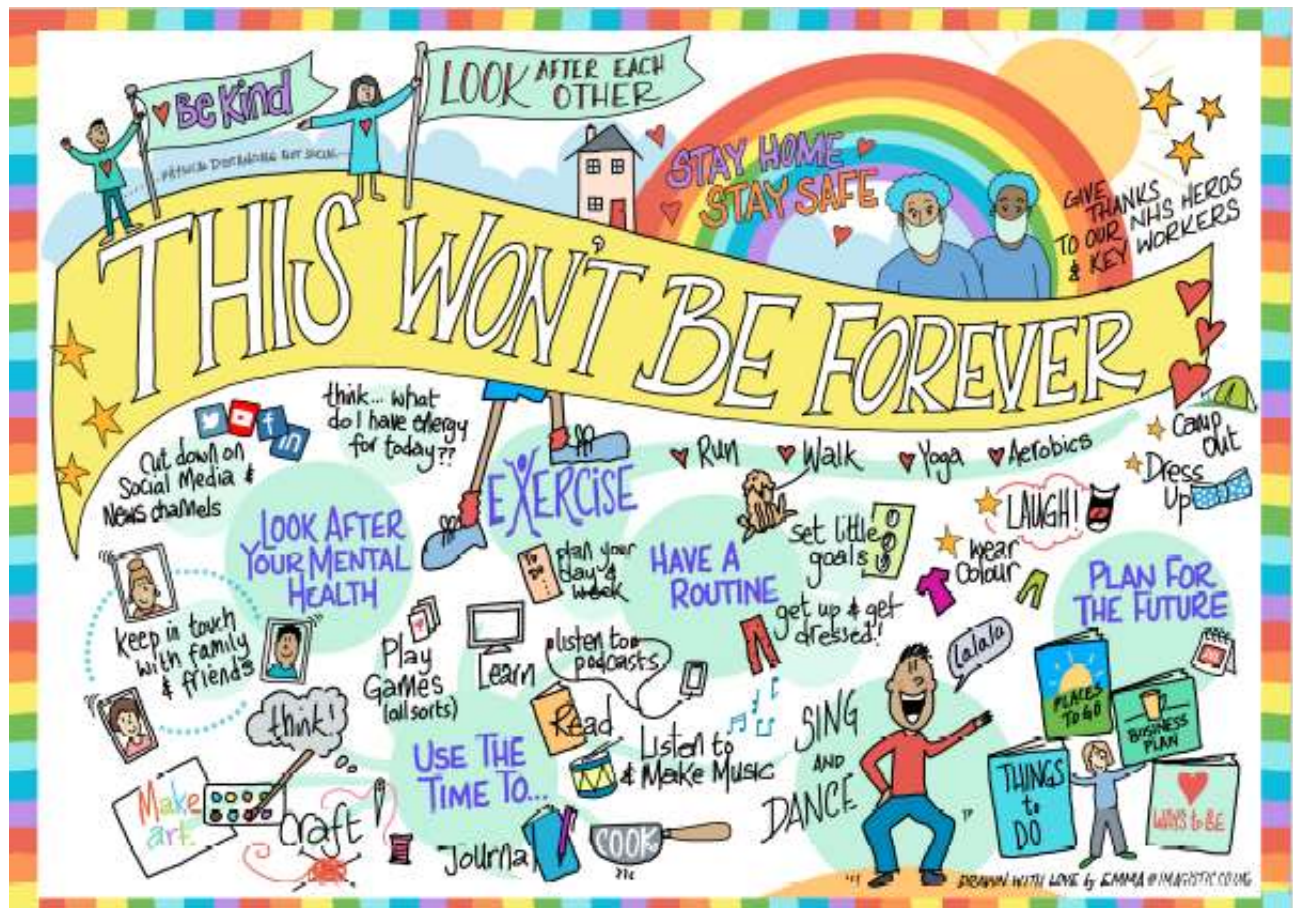 Be Kind
LOOK AFTER EACH
OTHER
PHYSICAL DISTANCING NOT SOCIAL
STAY HOME
STAY SAFE
GIVE
THANKS
TO OUR NHS HEROS
& KEY WORKERS
THIS WON'T BE FOREVER
Cut down on
Social Media &
News channels
think... what
do I have energy
for today??
EXERCISE
Run
Walk
Yoga
Aerobics
Camp
out
Dress
Up
LAUGH!
wear
Colour
LOOK AFTER
YOUR MENTAL
HEALTH
keep in touch
with family
& friends
TO
DO
plan your
day &
week
HAVE A
ROUTINE
set little
goals
get up & get
dressed!
PLAN FOR
THE FUTURE
Play
Games
(all sorts)
Learn
listen to
podcasts
Read
Listen to
& Make Music
think!
USE THE
TIME TO...
Make
art.
Craft
Journal
COOK
SING
AND
DANCE
lalala
PLACES
TO GO
BUSINESS
PLAN
THINGS
to
DO
WAYS to BE
DRAWN WITH LOVE by EMMA @IMAGISTIC.CO.UK